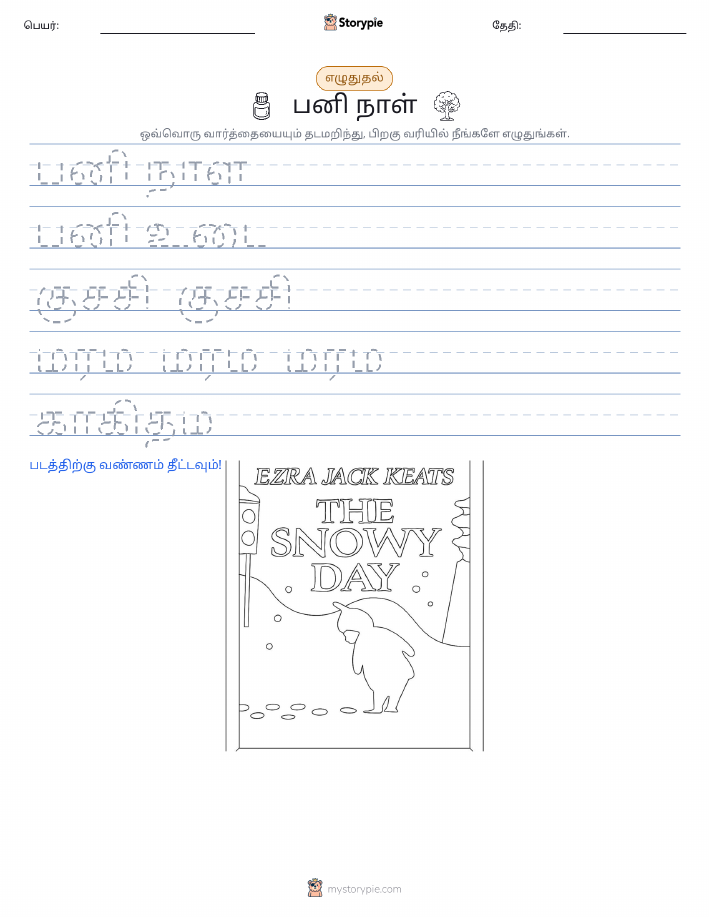 பெயர்: Storypie தேதி:
எழுதுதல்
பனி நாள்
ஒவ்வொரு வார்த்தையையும் தடமறிந்து, பிறகு வரியில் நீங்களே எழுதுங்கள்.
பனி நாள
பனி உடை
குசசி குசசி
மரம மரம மரம
காகிதம
படத்திற்கு வண்ணம் தீட்டவும்!
EZRA JACK KEATS
THE
SNOWY
DAY
mystorypie.com